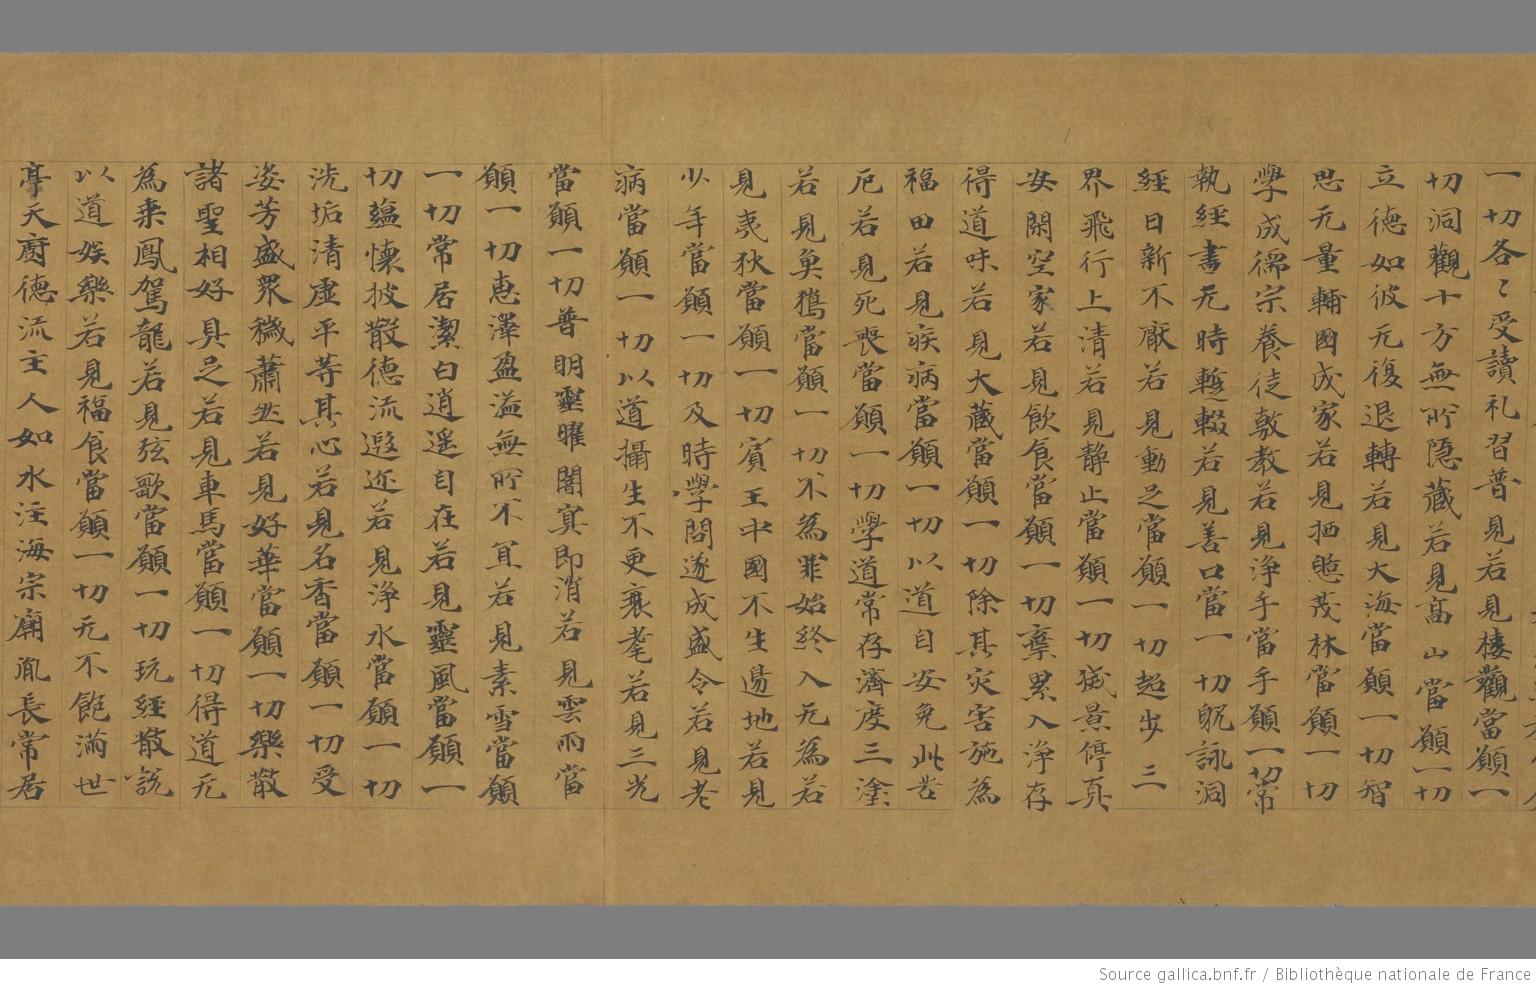 一切各〻受讀礼習普見若見樓觀當願一
切洞觀十方無所隱藏若見髙山當願一切
立德如彼无復退轉若見大海當願一切智
思无量輔國成家若見栖憩茂林當願一切
學成儒宗養徒敷教若見浄手當手願一切常
執經書无時蹔輟若見善口當一切躭詠洞
經日新不厭若見動足當願一切超步三
界飛行上清若見静止當願一切莊景停真
安閑空家若見飲食當願一切棄累入浄存
得道味若見大藏當願一切除其灾害施為
福田若見疾病當願一切以道自安免此苦
厄若見死喪當願一切學道常存濟度三塗
若見魚獵當願一切不為罪始終入无為若
見夷狄當願一切賓王中國不生邊地若見
少年當願一切及時學問遂成盛令若見老
病當願一切以道攝生不更衰耄若見三光
當願一切普明靈曜闇寞即消若見雲雨當
願一切恵澤盈溢無所不冝若見素雪當願
一切常居潔白逍遥自在若見靈風當願一
切蘊懷披散德流遐迩若見浄水當願一切
洗垢清虚平等其心若見名香當願一切受
姿芳盛眾穢蕭然若見好華當願一切樂散
諸聖相好具足若見車馬當願一切得道无
為乘鳳駕龍若見弦歌當願一切玩經散説
以道娱樂若見福食當願一切无不飽滿世
亭天廚德流主人如水注海宗廟胤長常居